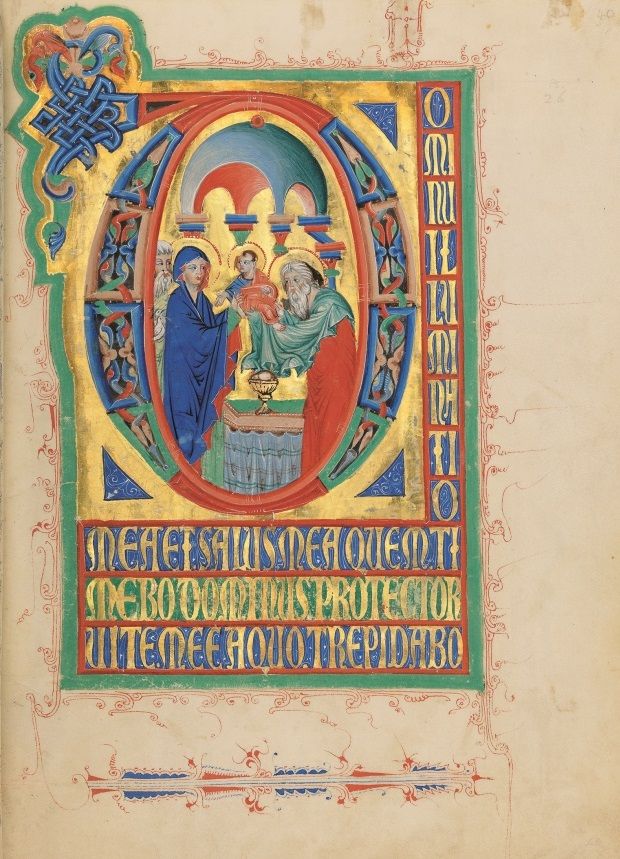 DOMINUILLUMINATIO
MEAETSALUSMEAQUEMTI
MEBODOMINUSPROTECTOR
UITEMEEAQUOTREPIDABO
40
26